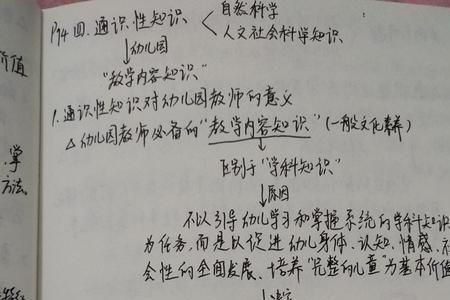 P94 四.通识性知识 < 自然科学
人文社会科学知识
↓幼儿园
"教学内容知识"
1.通识性知识对幼儿园教师的意义
△幼儿园教师必备的"教学内容知识"(一般文化素养)
↓
区别于"学科知识"
↓原因
不以引导幼儿学习和掌握系统的学科知识
为任务,而是以促进幼儿身体、认知、情感、社
会性的全面发展、培养"完整的儿童"为基本价值
价值
掌
方法